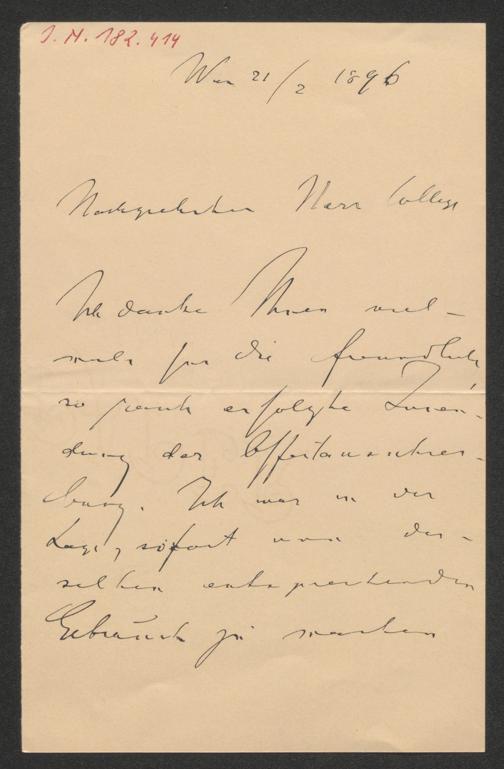 I. N. 182.414
Wien 21/2 1896
Hochgeehrter Herr College
Ich danke Ihnen viel-
mals für die freundliche
so rasch erfolgte Zusen-
dung der Offertausschrei-
bung. Ich war in der
Lage, sofort von der-
selben entsprechenden
Gebrauch zu machen